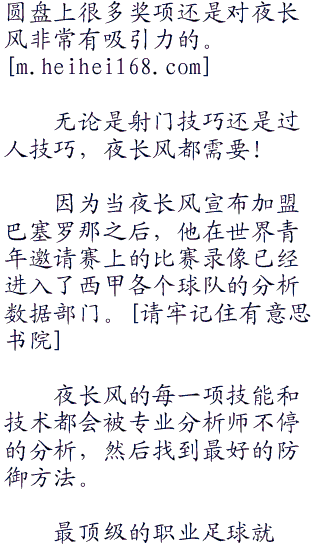 圆盘上很多奖项还是对夜长
风非常有吸引力的。
[m.heihei168.com]
无论是射门技巧还是过
人技巧，夜长风都需要！
因为当夜长风宣布加盟
巴塞罗那之后，他在世界青
年邀请赛上的比赛录像已经
进入了西甲各个球队的分析
数据部门。[请牢记住有意思
书院]
夜长风的每一项技能和
技术都会被专业分析师不停
的分析，然后找到最好的防
御方法。
最顶级的职业足球就